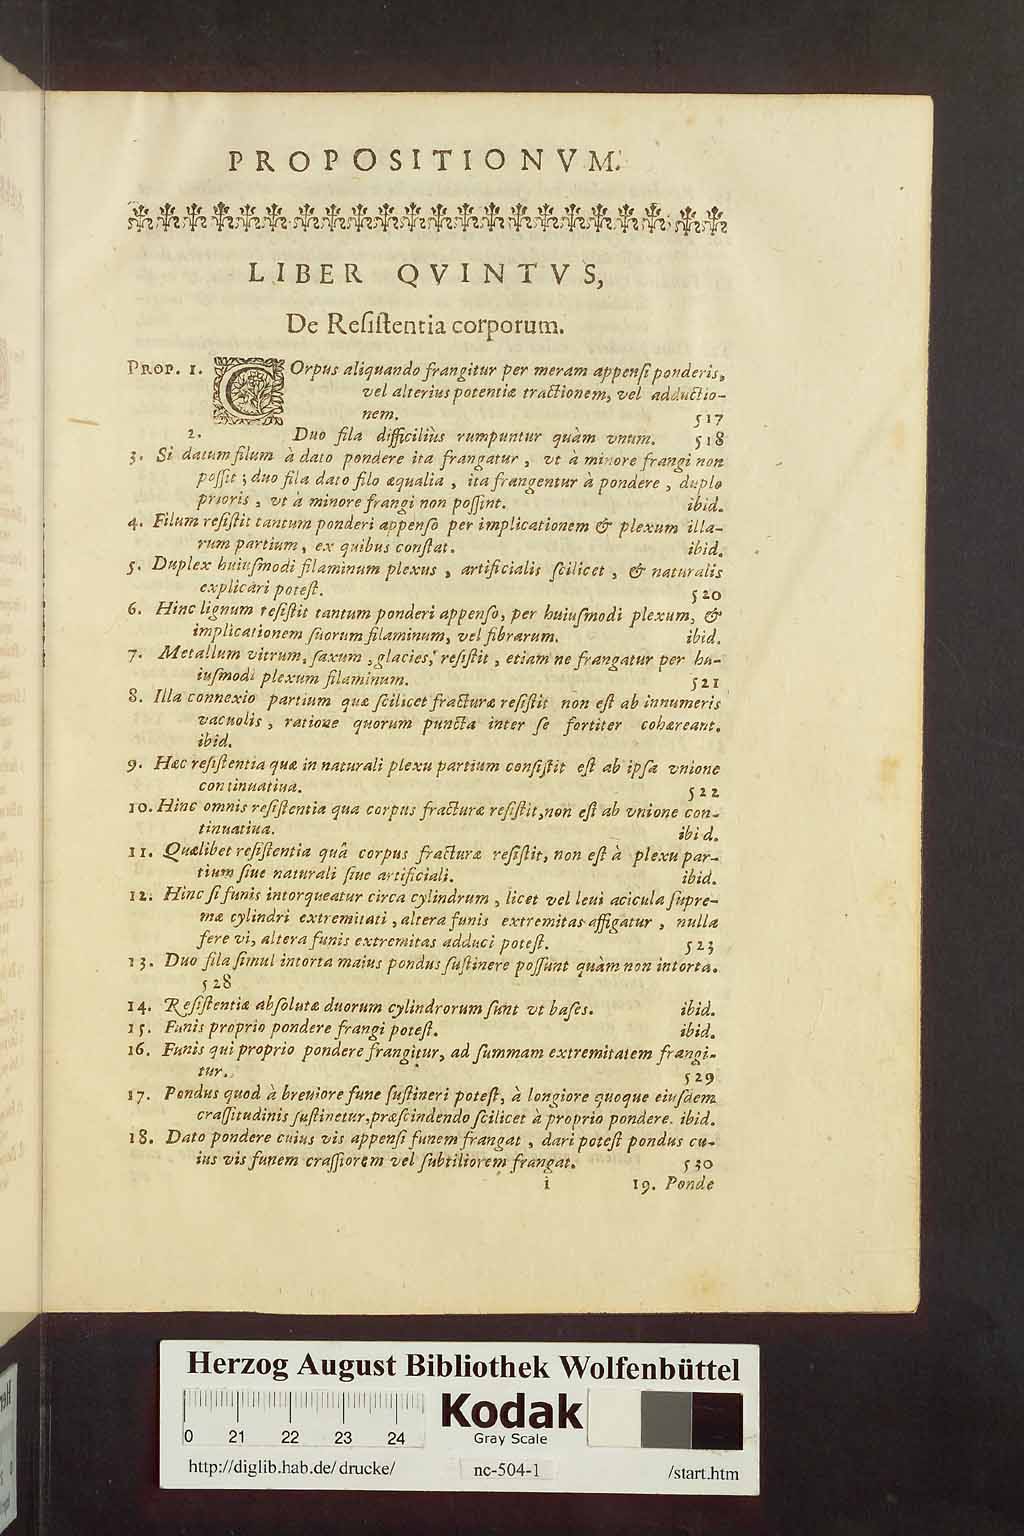 PROPOSITIONVM.
LIBER QVINTVS,
De Reſiſtentia corporum.
PROP. 1. COrpus aliquando frangitur per meram appenſi ponderis,
vel alterius potentiæ tractionem, vel adductio-
nem. 517
2. Duo fila difficiliùs rumpuntur quàm vnum. 518
3. Si datum filum à dato pondere ita frangatur, vt à minore frangi non
poſſit; duo fila dato filo æqualia, ita frangentur à pondere, duplo
prioris, vt à minore frangi non poſſint. ibid.
4. Filum reſiſtit tantum ponderi appenſo per implicationem & plexum illa-
rum partium, ex quibus conſtat. ibid.
5. Duplex huiuſmodi filaminum plexus, artificialis ſcilicet, & naturalis
explicari poteſt. 520
6. Hinc lignum reſiſtit tantum ponderi appenſo, per huiuſmodi plexum, &
implicationem ſuorum filaminum, vel fibrarum. ibid.
7. Metallum vitrum, ſaxum, glacies, reſiſtit, etiam ne frangatur per hu-
iuſmodi plexum filaminum. 521
8. Illa connexio partium quæ ſcilicet fracturæ reſiſtit non eſt ab innumeris
vacuolis, ratione quorum puncta inter ſe fortiter cohæreant.
ibid.
9. Hæc reſiſtentia quæ in naturali plexu partium conſiſtit eſt ab ipſa vnione
continuatiua. 522
10. Hinc omnis reſiſtentia qua corpus fracturæ reſiſtit, non eſt ab vnione con-
tinuatiua. ibid.
11. Quælibet reſiſtentia quâ corpus fracturæ reſiſtit, non eſt à plexu par-
tium ſiue naturali ſiue artificiali. ibid.
12. Hinc ſi funis intorqueatur circa cylindrum, licet vel leui acicula ſupre-
mæ cylindri extremitati, altera funis extremitas affigatur, nulla
fere vi, altera funis extremitas adduci poteſt. 523
13. Duo fila ſimul intorta maius pondus ſuſtinere poſſunt quàm non intorta.
528
14. Reſiſtentiæ abſolutæ duorum cylindrorum ſunt vt baſes. ibid.
15. Funis proprio pondere frangi poteſt. ibid.
16. Funis qui proprio pondere frangitur, ad ſummam extremitatem frangi-
tur. 529
17. Pondus quod à breuiore fune ſuſtineri poteſt, à longiore quoque eiuſdem
craſſitudinis ſuſtinetur, præſcindendo ſcilicet à proprio pondere. ibid.
18. Dato pondere cuius vis appenſi funem frangat, dari poteſt pondus cu-
ius vis funem craſſiorem vel ſubtiliorem frangat. 530
i 19. Ponde
Herzog August Bibliothek Wolfenbüttel
0 21 22 23 24
Kodak
Gray Scale
http://diglib.hab.de/drucke/ nc-504-1 /start.htm